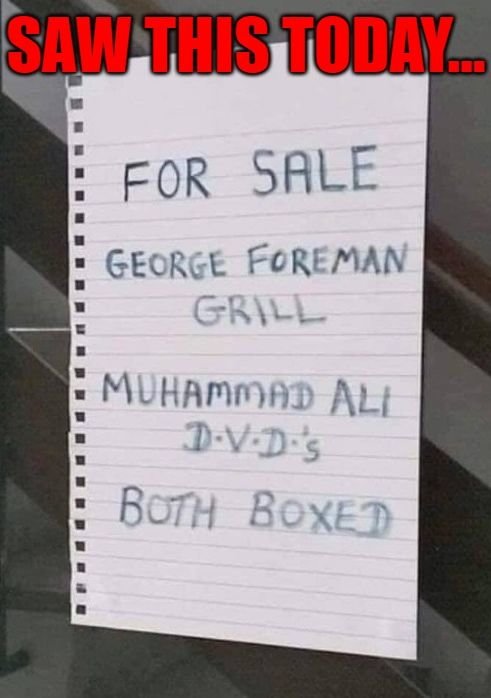 SAW THIS TODAY...
FOR SALE
GEORGE FOREMAN
GRILL
MUHAMMAD ALI
D.V.D.'s
BOTH BOXED